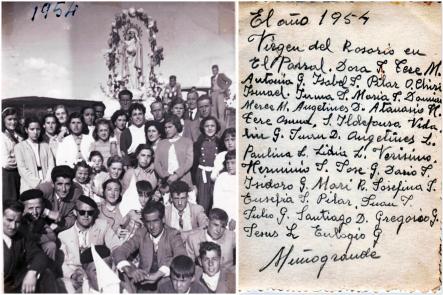 1954
El año 1954
Virgen del Rosario en
El Parral. Dora S. Tere M.
Antonia G. Isabel S. Pilar D.
Ismael. Inma S. Maria S.
Merce M. Angelines D. Atanasio H.
Tere S. Ildefonso. Vida
lia G. Juan D. Angelines L.
Paulina L. Lidia L. Verisimo.
Herminio S. Jose G. Dario S.
Isidoro G. Mari R. Josefina S.
Eusebia S. Pilar. Juan T.
Julio G. Santiago D. Gregorio G.
Jesus L. Eulogio G
Muñogrande